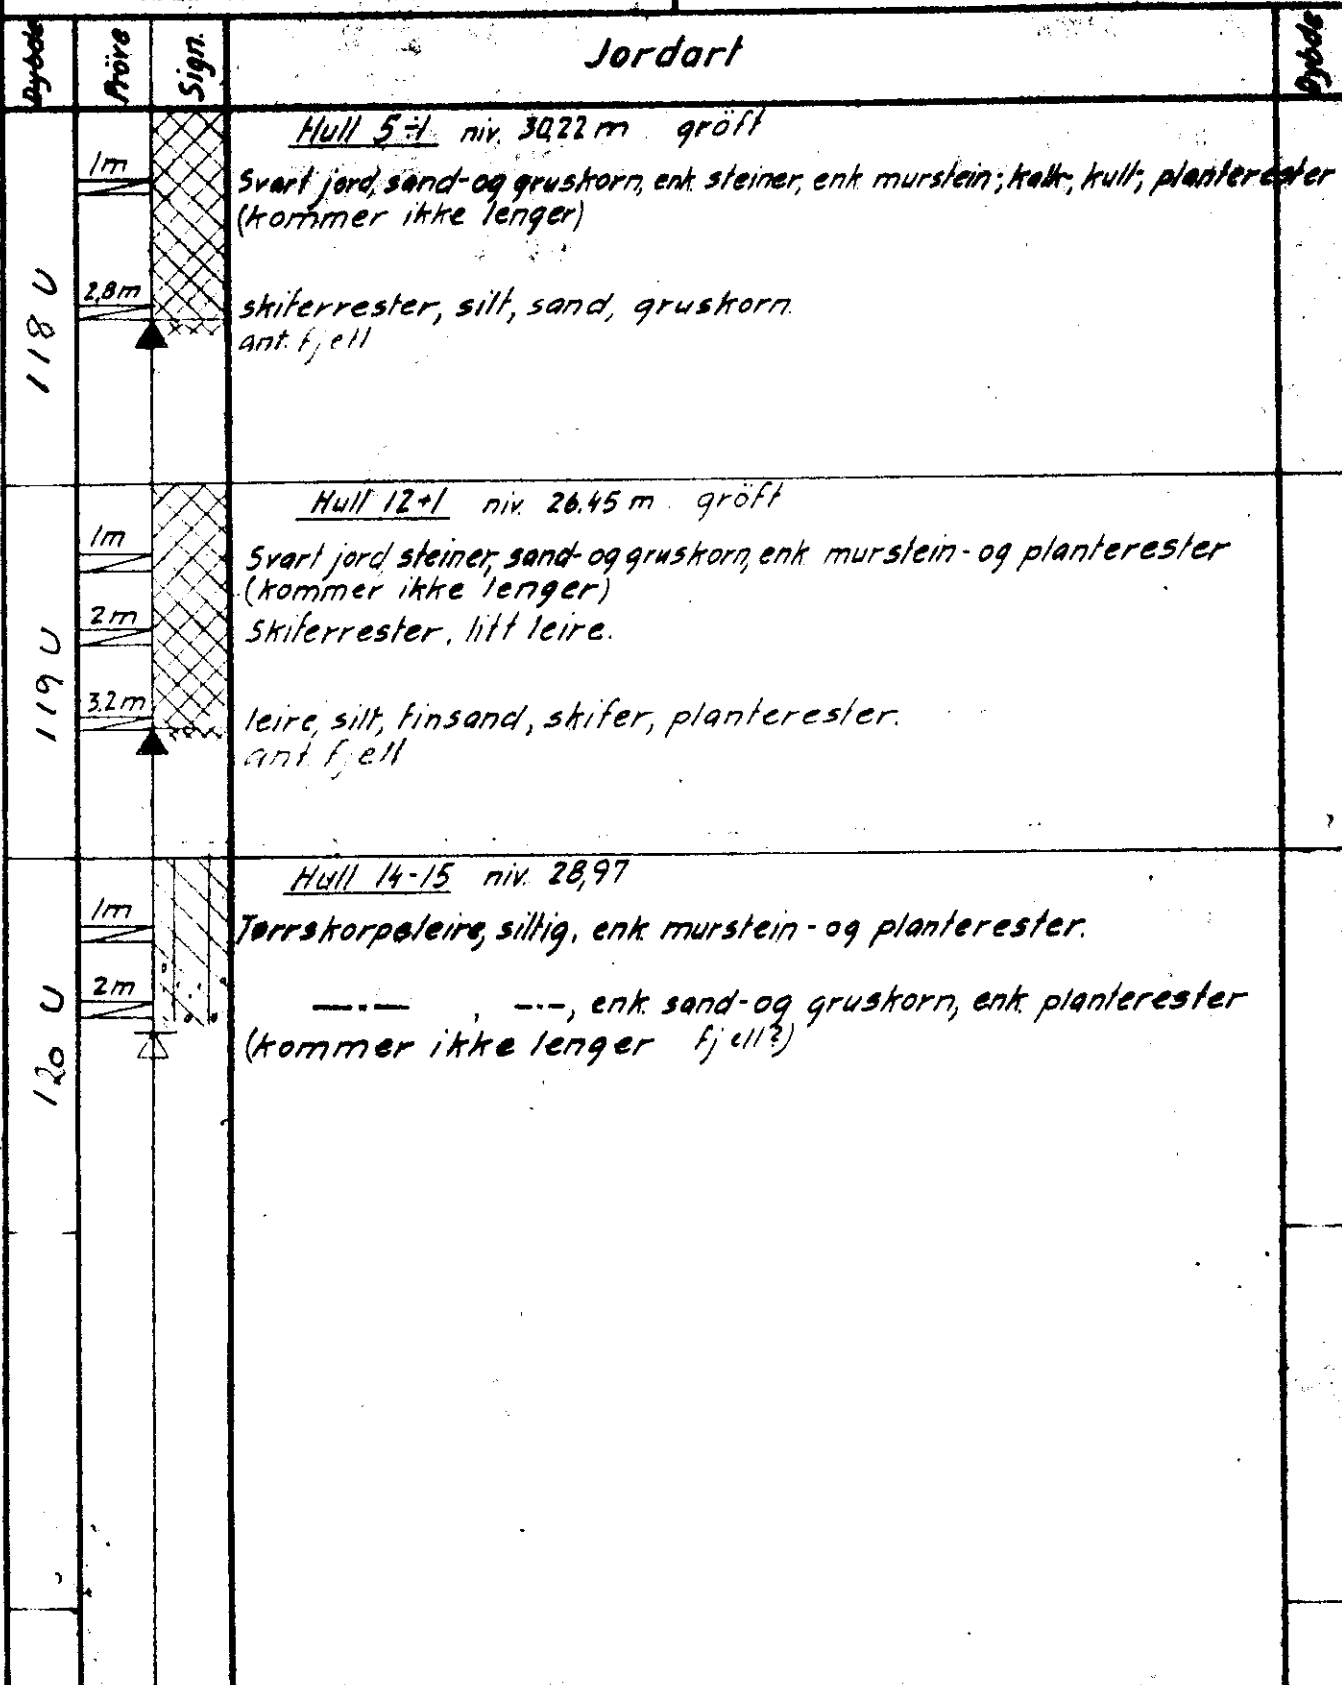 Dybde Pröve Sign. Jordart Dybde
Hull 5÷1 niv. 30,22 m gröft
1m
Svart jord, sand-og gruskorn, enk steiner, enk murstein-, kalk-, kull-, planterester
(kommer ikke lenger)
118 U
2,8m
skiferrester, silt, sand, gruskorn.
ant. fjell
Hull 12+1 niv. 26.45 m. gröft
1m
Svart jord, steiner, sand-og gruskorn, enk murstein-og planterester
(kommer ikke lenger)
2m
Skiferrester, litt leire.
119 U
3.2m
leire, silt, finsand, skifer, planterester.
ant. fjell
Hull 14-15 niv. 28,97
1m
Tørrskorpeleire, siltig, enk murstein-og planterester.
120 U
2m
—·— , -·-, enk sand-og gruskorn, enk planterester
(kommer ikke lenger fjell?)